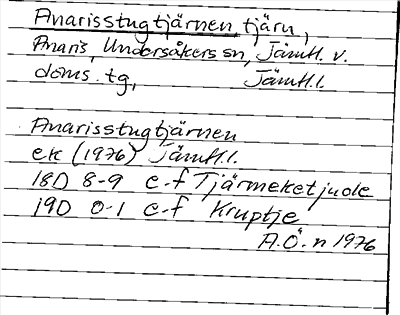 Anarisstugtjärnen tjärn,
Anaris, Undersåkers sn, Jämtl. v.
doms. tg, Jämtl. l.
Anarisstugtjärnen
ek (1976) Jämtl. l.
18D 8-9 e-f Tjärmeketjuole
19D 0-1 e-f Kruptje
A.Ö. n 1976